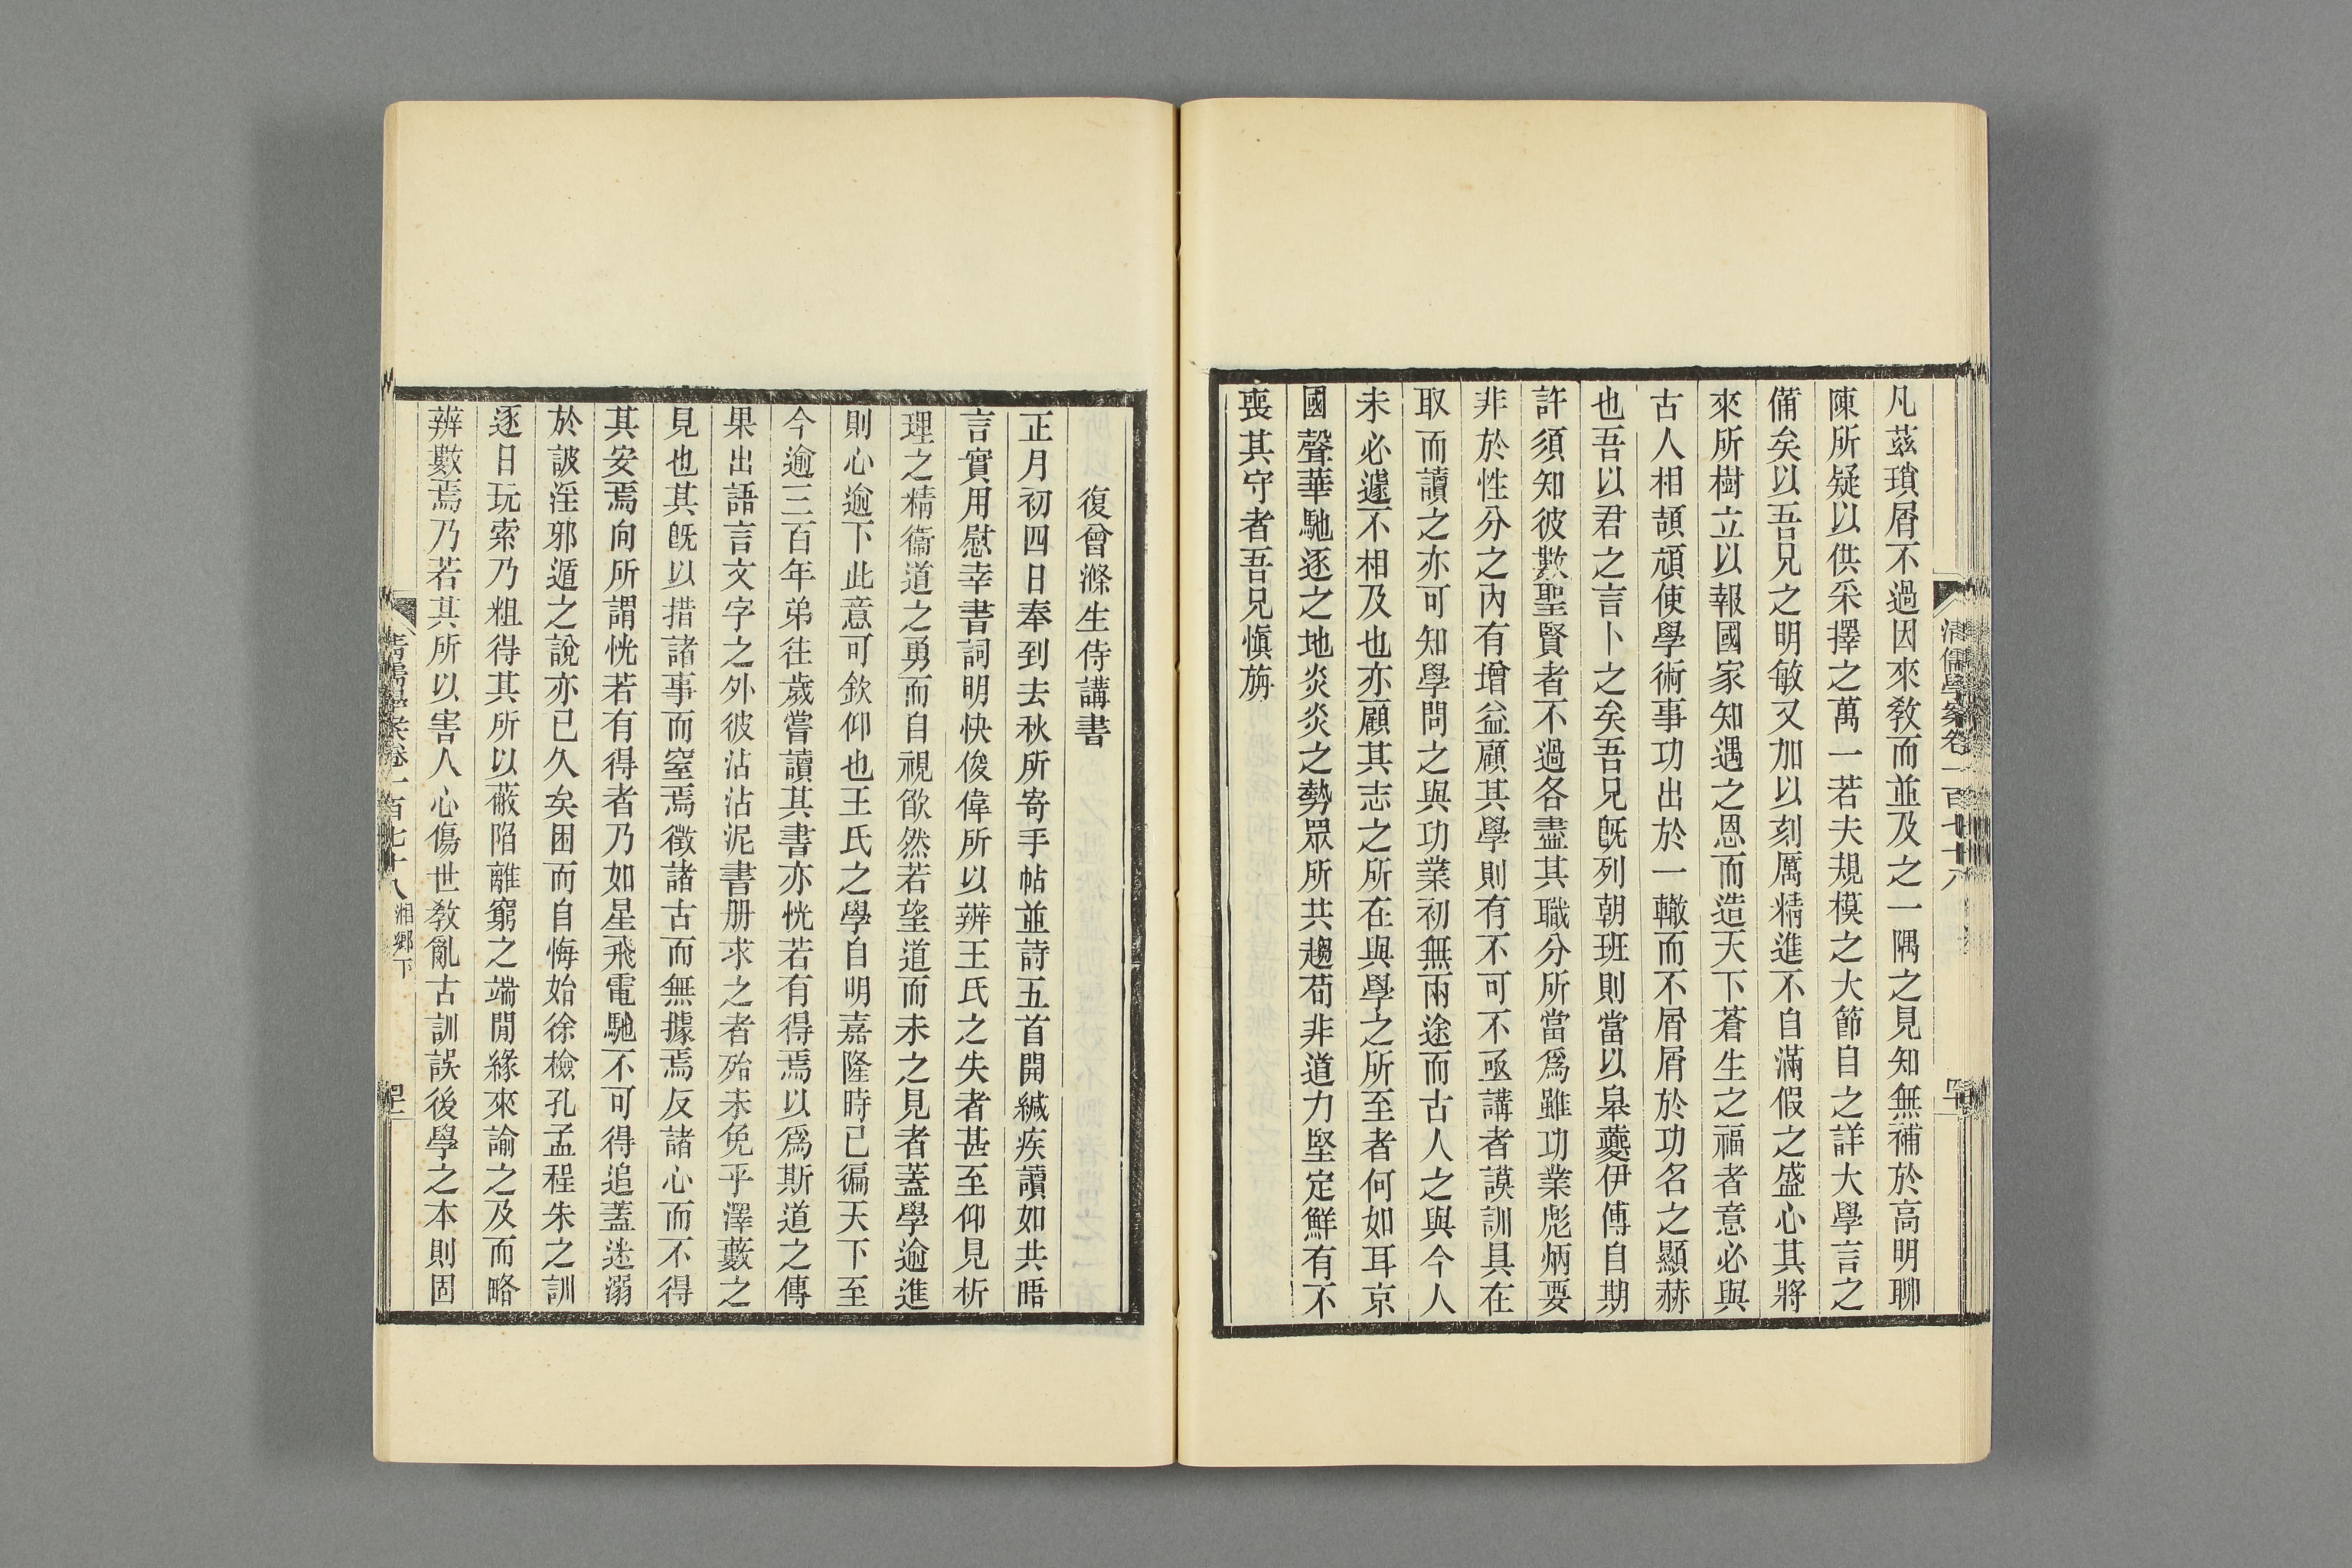 凡茲瑣屑不過因來敎而並及之一隅之見知無補於高明聊
陳所疑以供采擇之萬一若夫規模之大節自之詳大學言之
備矣以吾兄之明敏又加以刻厲精進不自滿假之盛心其將
來所樹立以報國家知遇之恩而造天下蒼生之福者意必與
古人相頡頏使學術事功出於一轍而不屑屑於功名之顯赫
也吾以君之言卜之矣吾兄旣列朝班則當以皋夔伊傅自期
許須知彼數聖賢者不過各盡其職分所當爲雖功業彪炳要
非於性分之內有增益顧其學則有不可不亟講者謨訓具在
取而讀之亦可知學問之與功業初無兩途而古人之與今人
未必遽不相及也亦顧其志之所在與學之所至者何如耳京
國聲華馳逐之地炎炎之勢眾所共趨苟非道力堅定鮮有不
喪其守者吾兄愼旃
清儒學案卷一百七十八
復曾滌生侍講書
正月初四日奉到去秋所寄手帖並詩五首開緘疾讀如共晤
言實用慰幸書詞明快俊偉所以辨王氏之失者甚至仰見析
理之精衞道之勇而自視欿然若望道而未之見者蓋學逾進
則心逾下此意可欽仰也王氏之學自明嘉隆時已徧天下至
今逾三百年弟往歲嘗讀其書亦恍若有得焉以爲斯道之傳
果出語言文字之外彼沾沾泥書册求之者殆未免乎澤藪之
見也其旣以措諸事而窒焉徵諸古而無據焉反諸心而不得
其安焉向所謂恍若有得者乃如星飛電馳不可得追蓋迷溺
於詖淫邪遁之說亦已久矣困而自悔始徐檢孔孟程朱之訓
逐日玩索乃粗得其所以蔽陷離窮之端閒緣來諭之及而略
辨數焉乃若其所以害人心傷世敎亂古訓誤後學之本則固
清儒學案卷一百七十八 湘鄉下